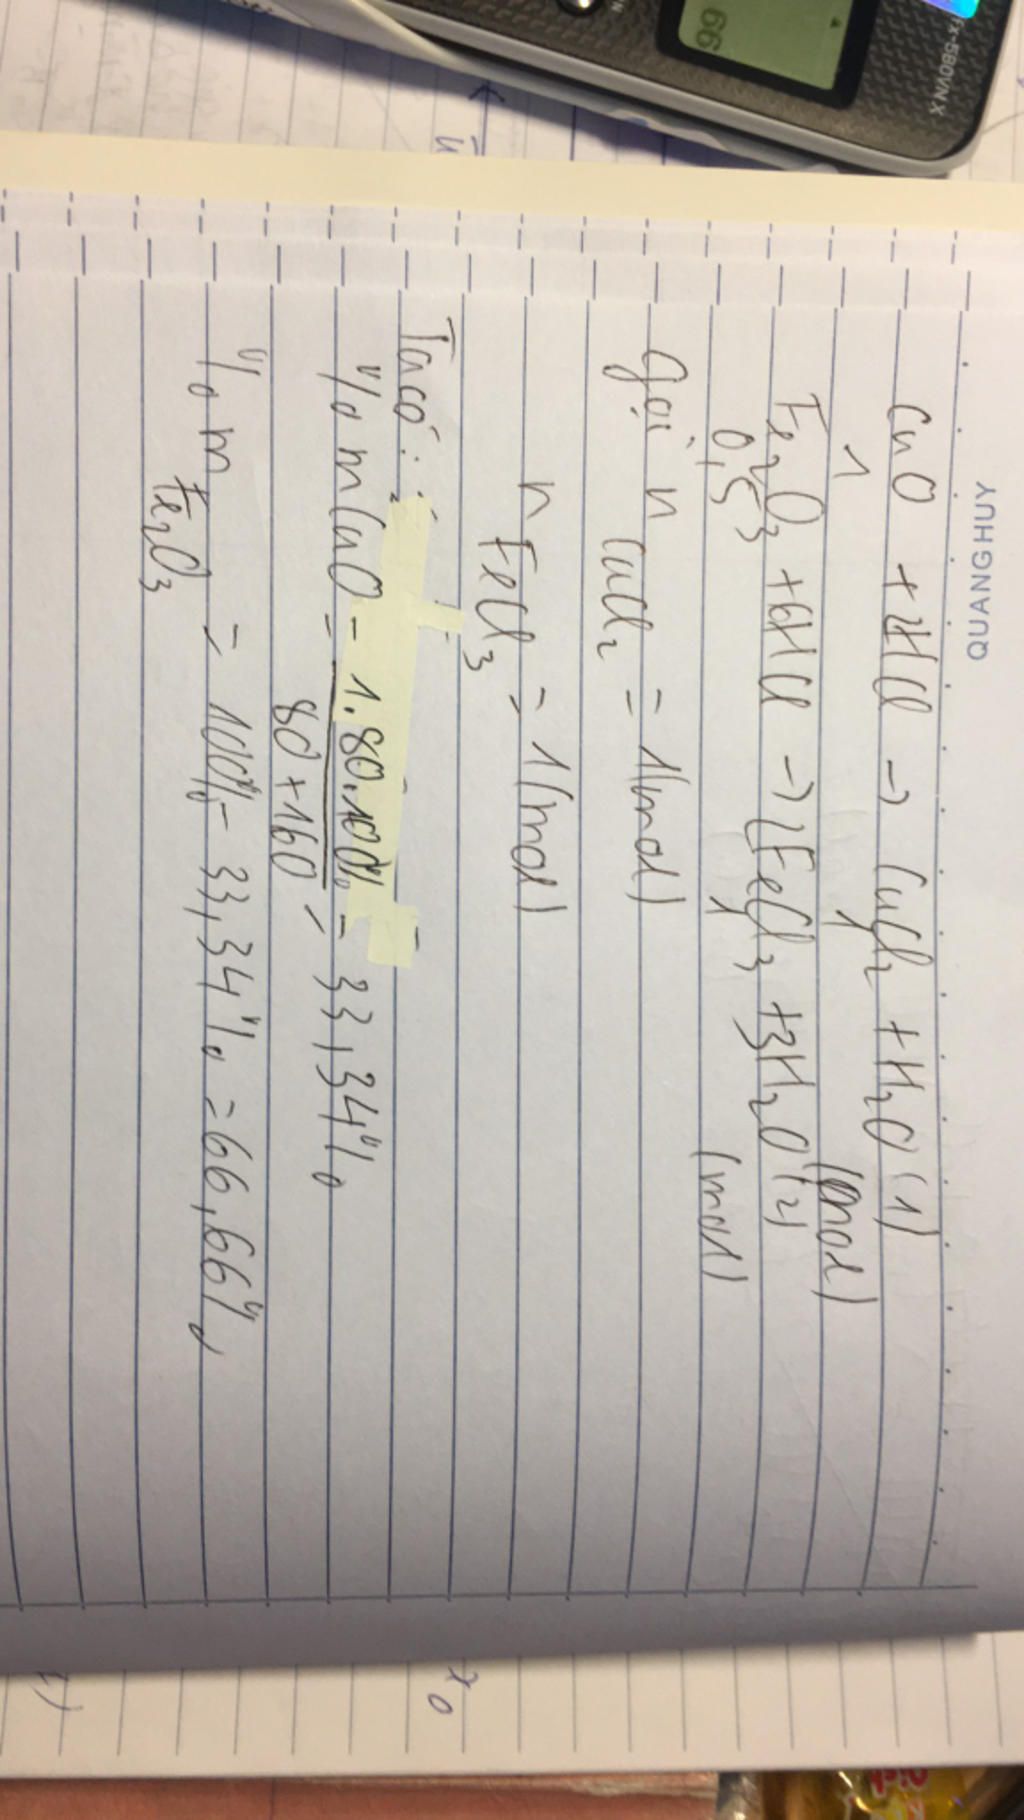 QUANG HUY
CuO + 2HCl -> CuCl2 + H2O (1)
1 1 (mol)
Fe2O3 + 6HCl -> 2FeCl3 + 3H2O (2)
0,5 1 (mol)
Gọi n CuCl2 = 1(mol)
n FeCl3 = 1(mol)
Ta có:
%mCuO = 1.80.100% / 80+160 = 33,34%
%m Fe2O3 = 100% - 33,34% = 66,66%
fx-580VNX
66